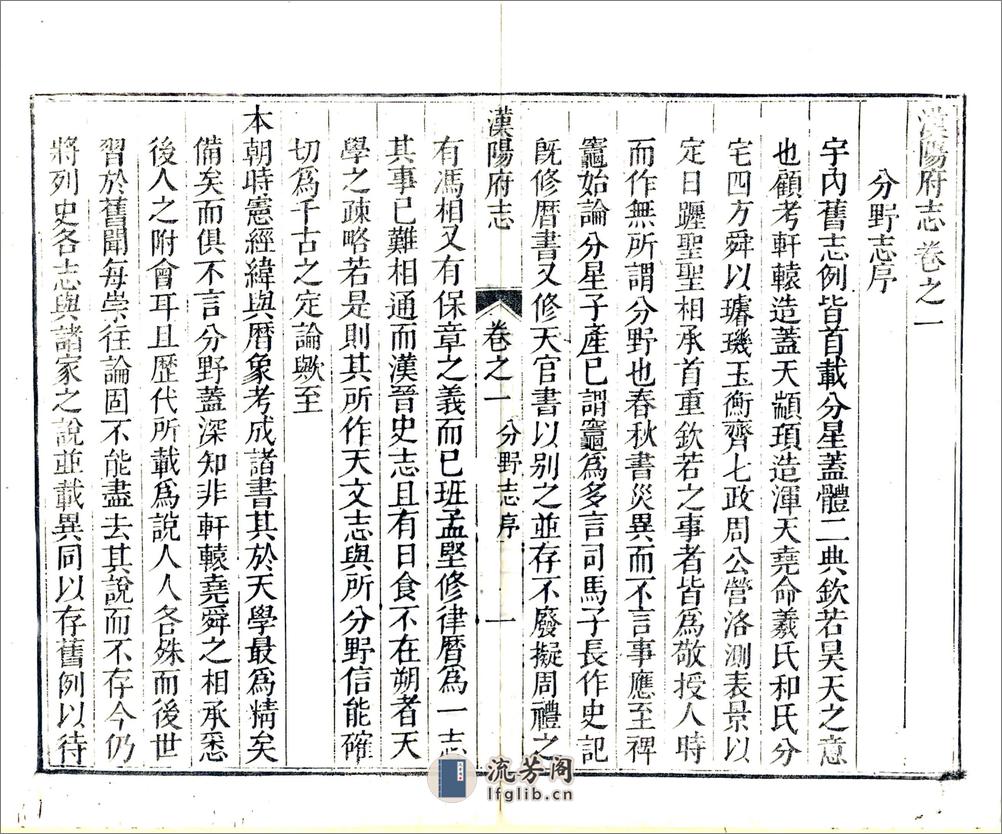 漢陽府志卷之一
分野志序
宇內舊志例皆首載分星蓋體二典欽若昊天之意
也顧考軒轅造蓋天顓頊造渾天堯命羲氏和氏分
宅四方舜以璿璣玉衡齊七政周公營洛測表景以
定日躔聖聖相承首重欽若之事者皆為敬授人時
而作無所謂分野也春秋書災異而不言事應至裨
竈始論分星子產已謂竈為多言司馬子長作史記
旣修曆書又修天官書以别之並存不廢擬周禮之
漢陽府志
卷之一
分野志序
一
有馮相又有保章之義而已班孟堅修律曆為一志
其事已難相通而漢晉史志且有日食不在朔者天
學之疎略若是則其所作天文志與所分野信能確
切為千古之定論歟至
本朝時憲經緯與曆象考成諸書其於天學最為精矣
備矣而俱不言分野蓋深知非軒轅堯舜之相承悉
後人之附會耳且歷代所載為說人人各殊而後世
習於舊聞每崇往論固不能盡去其說而不存今仍
將列史各志與諸家之說並載異同以存舊例以待
流芳阁
lfglib.cn